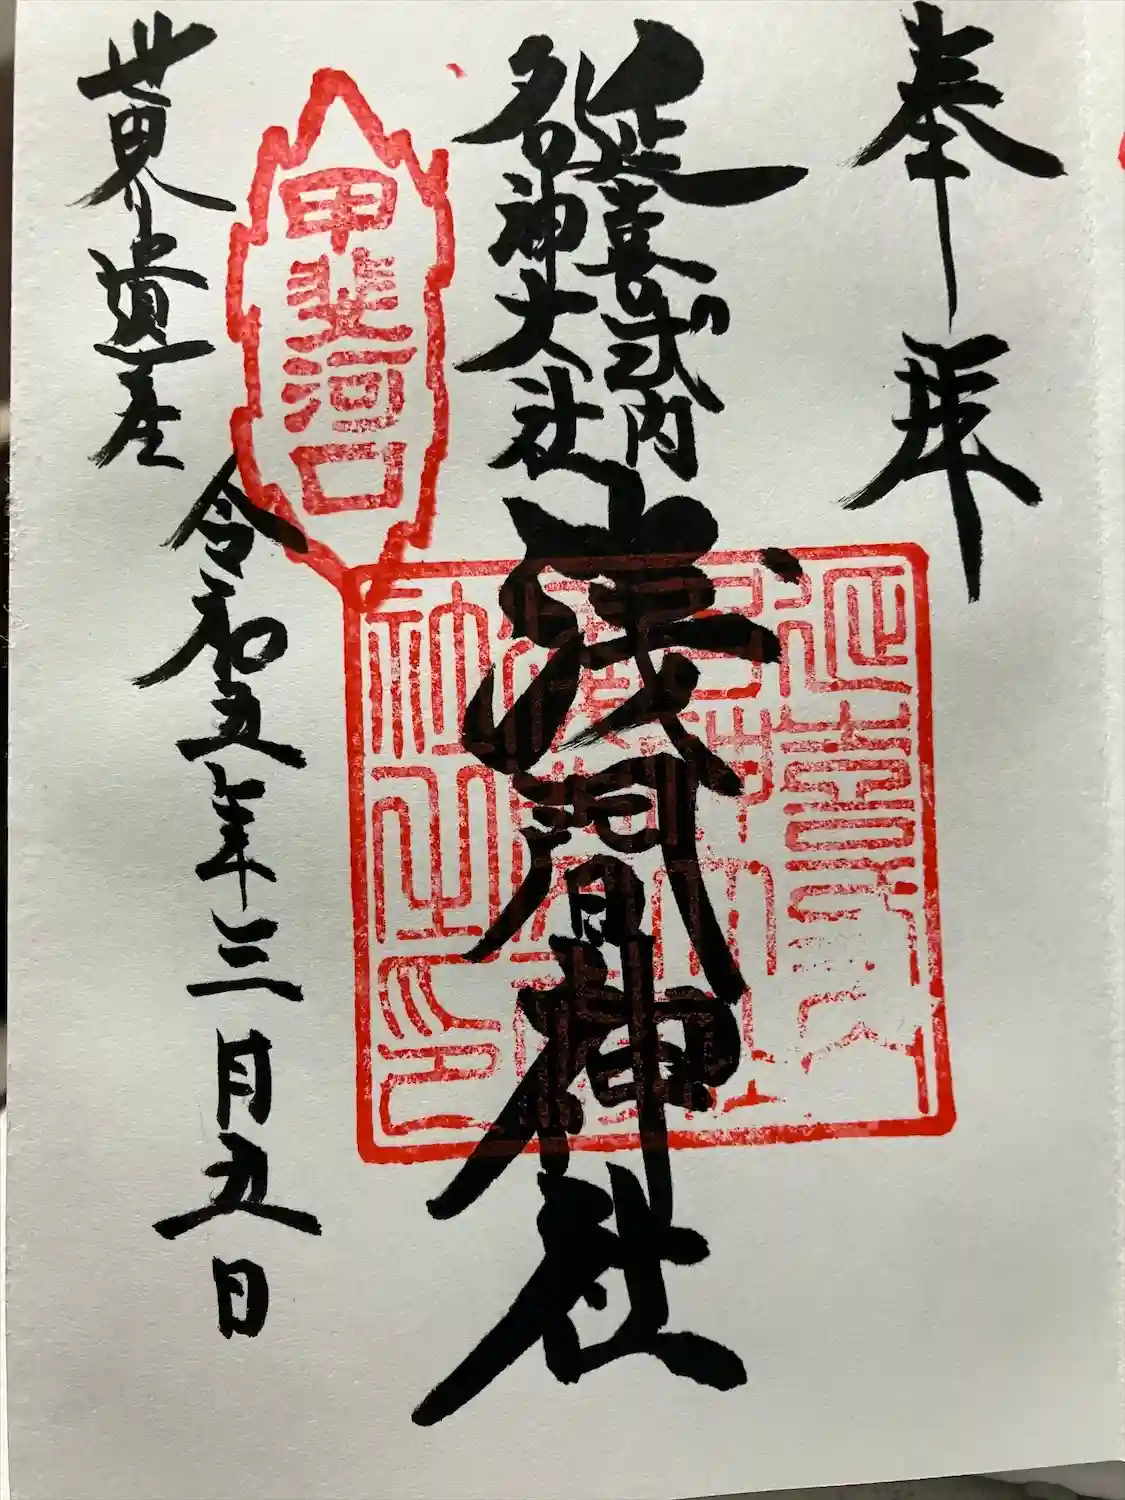 奉拝
延喜式内
名神大社
浅間神社
甲斐河口
延喜式内
名神大社
社之印
令和五年三月五日
世界遺産